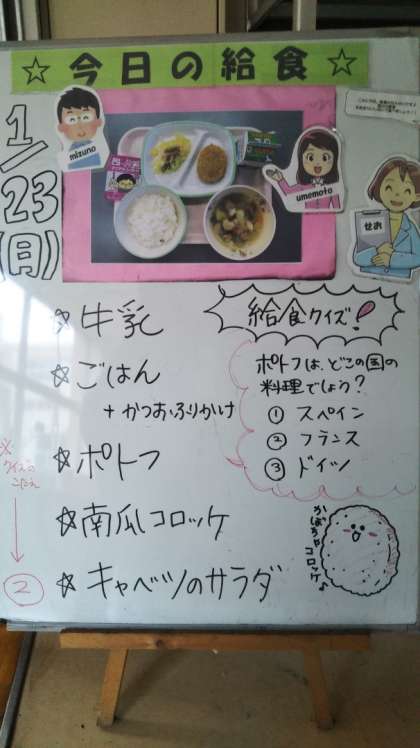 ☆今日の給食☆
1/23(日)
mizuno
umemoto
せお
☆牛乳
☆ごはん
+かつおふりかけ
☆ポトフ
☆南瓜コロッケ
☆キャベツのサラダ
給食クイズ!
ポトフは、どこの国の
料理でしょう?
① スペイン
② フランス
③ ドイツ
かぼちゃコロッケ♪
※クイズの
こたえ
↓
②